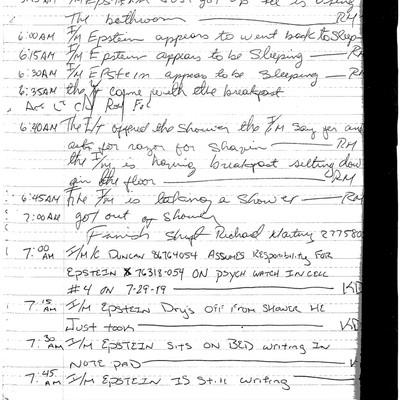 The bathroom — RM
6:00AM I/M Epstein appears to went back to sleep
6:15AM I/M Epstein appears to be sleeping — RM
6:30AM I/M Epstein appears to be sleeping — RM
6:35AM the come with the breakfast
6:40AM The offerd the shower the I/M say yes and
ask for razor for shavin — RM
the I/M is having breakfast sitting down
on the floor — RM
6:45AM The I/M is taking a shower — RM
7:00AM got out of shower
Finish shift Richard 277580
7:00 AM I/M K DUNCAN 86764054 ASSUMES RESPONSIBILITY FOR
EPSTEIN 76318-054 ON PSYCH WATCH IN CELL
#4 ON 7-29-19 — KD
7:15 AM I/M EPSTEIN Drys OFF FROM SHOWER HE
Just took — KD
7:30 AM I/M EPSTEIN SITS ON BED WRITING IN
NOTE PAD — K
7:45 AM I/M EPSTEIN IS Still writing